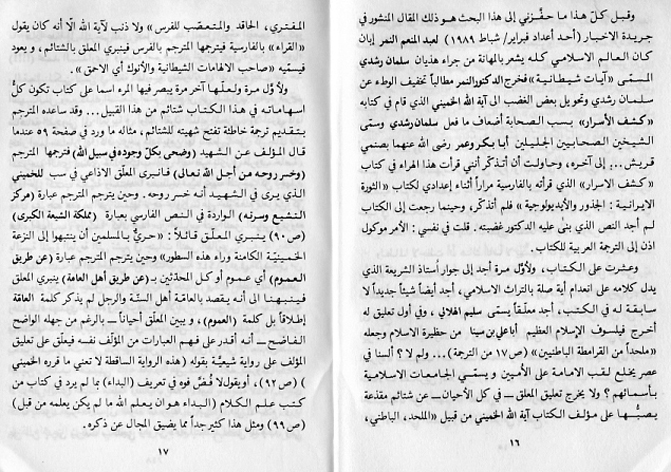 وقبل كلّ هذا ما حفّزني إلى هذا البحث هو ذلك المقال المنشور في
جريدة الاخبار (أحد أعداد فبراير/ شباط ١٩٨٩) لعبد المنعم النمر إبان
كان العالم الاسلامي كله يشعر بالمهانة من جراء هذيان سلمان رشدي
المسمّى «آيات شيطانية» فخرج الدكتور النمر مطالباً تخفيف الوطء عن
سلمان رشدي وتحويل بعض الغضب الى آية الله الخميني الذي قام في كتابه
«كشف الأسرار» بسب الصحابة أضعاف ما فعل سلمان رشدي وسمّى
الشيخين الصحابيين الجليلين أبا بكر وعمر رضى الله عنهما بصنمي
قريش... إلى آخره، وحاولت أن أتذكّر أنني قرأت هذا الهراء في كتاب
«كشف الاسرار» الذي قرأته بالفارسية مراراً أثناء إعدادي لكتاب «الثورة
الايرانية : الجذور والأيديولوجية» فلم أتذكّر، وحينما رجعت إلى الكتاب
لم أجد النص الذي بنى عليه الدكتور غضبته. قلت في نفسي : الأمر موكول
اذن إلى الترجمة العربية للكتاب.
وعثرت على الكتاب، ولأوّل مرة أجد إلى جوار أستاذ الشريعة الذي
يدل كلامه على انعدام أية صلة بالتراث الاسلامي، أجد أيضاً شيئاً جديداً لا
سابقة له في الكتب، أجد معلّقاً يسمى سليم الهلالي، وفي أول تعليق له
أخرج فيلسوف الإسلام العظيم أبا علي بن سينا من حظيرة الاسلام وجعله
«ملحداً من القرامطة الباطنيين» (ص ١٧ من الترجمة)... ولم لا ؟ ألسنا في
عصر يخلع لقب الامامة على الأميين ويسمّي الجامعات الاسلامية
بأسمائهم ؟ ولا يخرج تعليق المعلق ــ في كل الأحيان ــ عن شتائم مقذعة
يصبّها على مؤلف الكتاب آية الله الخميني من قبيل «الملحد، الباطني،
١٦
المفتري، الحاقد والمتعصّب للفرس» ولا ذنب لآية الله الّا أنه كان يقول
«القراء» بالفارسية فيترجمها المترجم بالفرس فينبري المعلق بالشتائم، ويعود
فيسمّيه «صاحب الالهامات الشيطانية والأنوك أي الاحمق».
ولأوّل مرة ولعلّها آخر مرة يبصر فيها المرء اسما على كتاب تكون كلّ
اسهاماته في هذا الكتاب شتائم من هذا القبيل... وقد ساعده المترجم
بتقديم ترجمة خاطئة تفتح شهيته للشتائم، مثاله ما ورد في صفحة ٥٩ عندما
قال المؤلف عن الشهيد (وضحى بكلّ وجوده في سبيل الله) فترجمها المترجم
(وخسر روحه من أجل الله تعالى) فانبرى المعلّق الاذاعي في سب للخميني
الذي يرى في الشهيد أنه خسر روحه. وحين يترجم المترجم عبارة (مركز
التشيع وسرته) الواردة في النص الفارسي بعبارة (مملكة الشيعة الكبرى)
(ص ٩٠) ينبري المعلّق قائلاً : «حريٌّ بالمسلمين أن ينتبهوا إلى النزعة
الخمينيّة الكامنة وراء هذه السطور» وحين يترجم المترجم عبارة (عن طريق
العموم) أي عموم أو كل المحدّثين بـ (عن طريق أهل العامة) ينبري المعلق
فينبهنا الى أنه يقصد بالعامة أهل السنّة والرجل لم يذكر كلمة العامّة
إطلاقاً بل كلمة (العموم)، ويبين المعلّق أحياناً ــ بالرغم من جهله الواضح
الفاضح ــ أنه أقدر على فهم العبارات من المؤلف نفسه فيعلّق على تعليق
المؤلف على رواية شيعية بقوله (هذه الرواية الساقطة لا تعني ما قرره الخميني
) (ص ٩٢)، أو يقول لا فُضّ فوه في تعريف (البداء) بما لم يرد في كتاب من
كتب علم الكلام (البداء هو ان يعلم الله ما لم يكن يعلمه من قبل)
(ص ٩٩) ومثل هذا كثير جداً مما يضيق المجال عن ذكره.
١٧